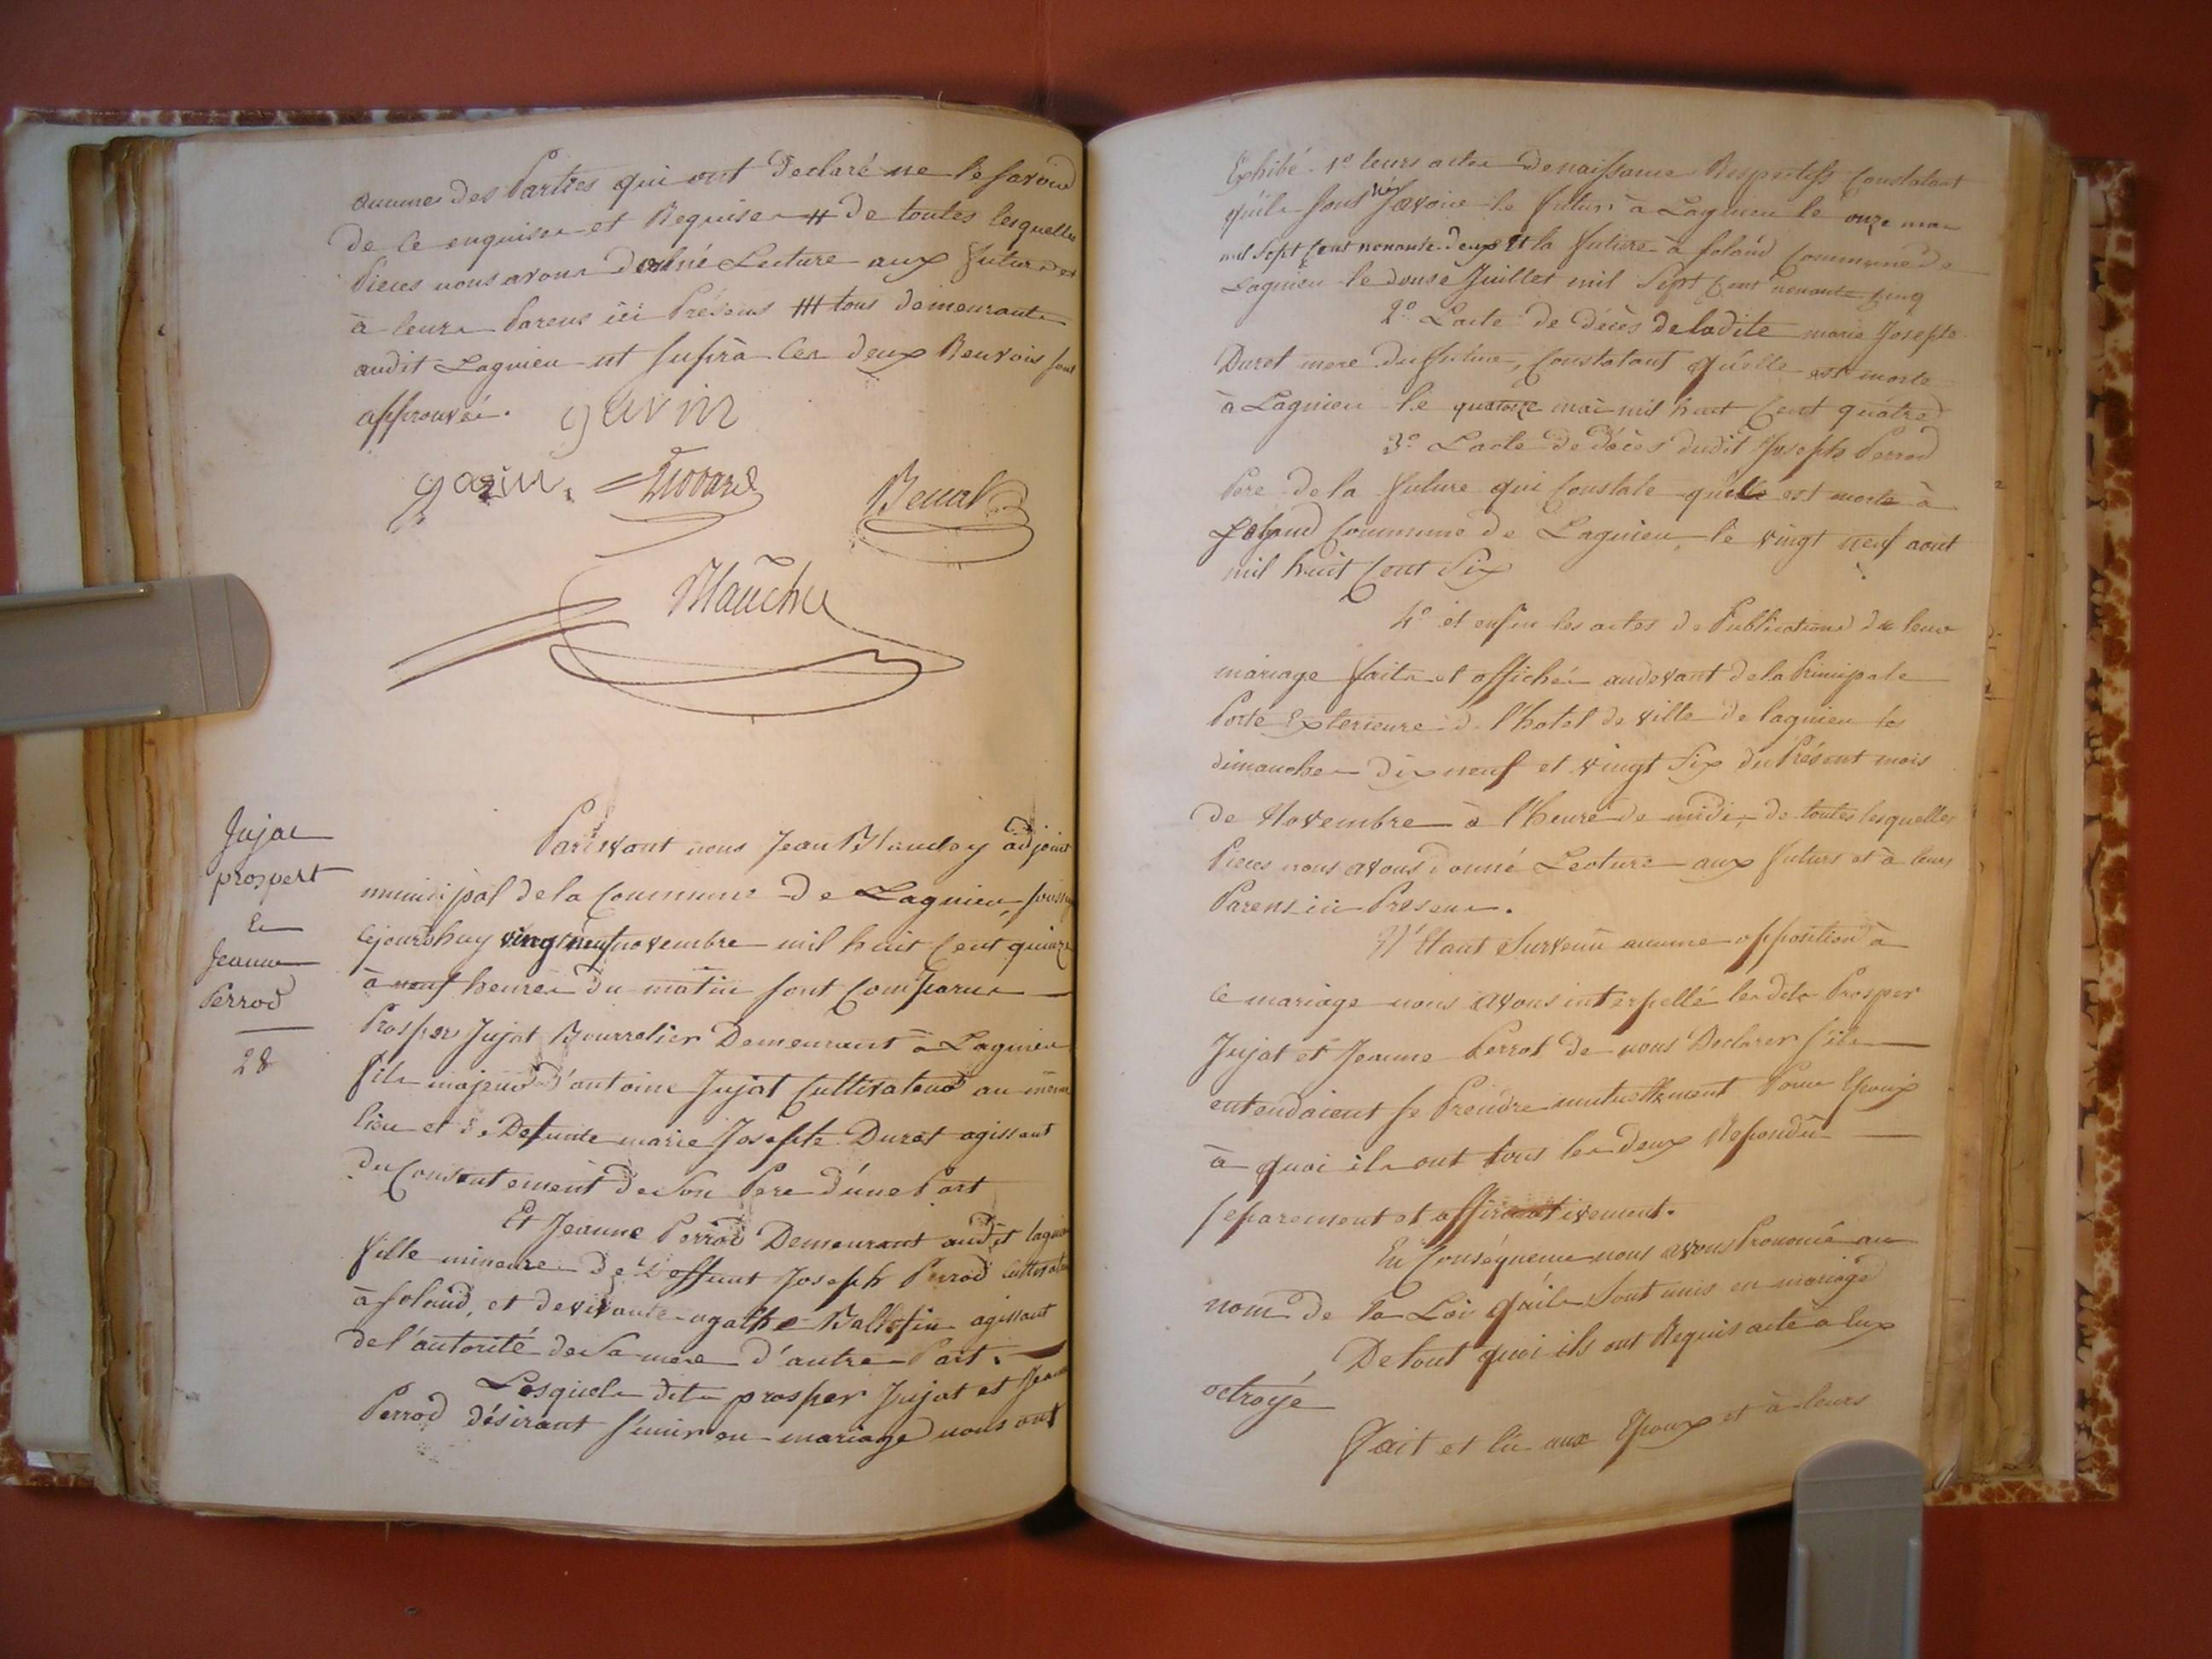 aucune des Parties qui ont Declaré ne le savoir
de ce enquises et Requises # de toutes lesquelles
Pieces nous avons donné Lecture aux futurs et
à leurs Parens ici Présens ## tous demeurants
audit Lagnieu ut suprà les deux Renvois sont
approuvés. garin
garin
Benat
Jujat
prospert
et
Jeanne
Perrod
28
Pardevant nous Jean adjoint
municipal de la Commune de Lagnieu,
cejourdhuy vingt neuf novembre mil huit Cent quinze
à neuf heures du matin sont Comparus
Prosper Jujat Bourrelier Demeurant à Lagnieu
fils majeur d'antoine Jujat Cultivateur au même
lieu et de Defunte marie Josephte Duret agissant
du Consentement de Son Pere d'une Part
Et Jeanne Perrod Demeurant audit lagnieu
fille mineure de Deffunt Joseph Perrod cultivateur
à solaud, et de vivante agathe agissant
de l'autorité de Sa mere d'autre Part.
Lesquels dits prosper Jujat et Jeanne
Perrod désirant s'unir en mariage nous ont
Exhibé 1° leurs actes de naissance Respectifs Constatant
qu'ils sont nés Savoir le futur à Lagnieu le onze mai
mil Sept Cent nonante deux et la future à solaud Commune de
Lagnieu le douse Juillet mil Sept Cent nonante cinq
2° Lacte de décès de ladite marie Josephte
Duret mere du futur, Constatant qu'elle est morte
à Lagnieu le quatorze mai mil huit Cent quatre
3° Lacte de décès dudit Joseph Perrod
Pere de la future qui Constate quelle est morte à
Solaud Commune de Lagnieu le vingt neuf aout
mil huit Cent Six
4° et enfin les actes de Publications de leur
mariage faits et affichés audevant de la Principale
Porte Exterieure de l'hotel de ville de lagnieu les
dimanches dix neuf et vingt Six du Présent mois
de Novembre à l'heure de midi, de toutes lesquelles
Pieces nous avons donné Lecture aux futurs et à leurs
Parens ici Presens.
N'Etant Survenû aucune opposition à
ce mariage nous avons interpellé les dits Prosper
Jujat et Jeanne Perrod de nous Declarer s'ils
entendaient se Prendre mutuellement Pour Epoux
à quoi ils ont tous les deux Repondû
separement et affirmativement.
En Conséquence nous avons Prononcé au
nom de la Loi qu'ils sont unis en mariage
De tout quoi ils ont Requis acte à Eux
octroyé
Fait et lu aux Epoux et à leurs